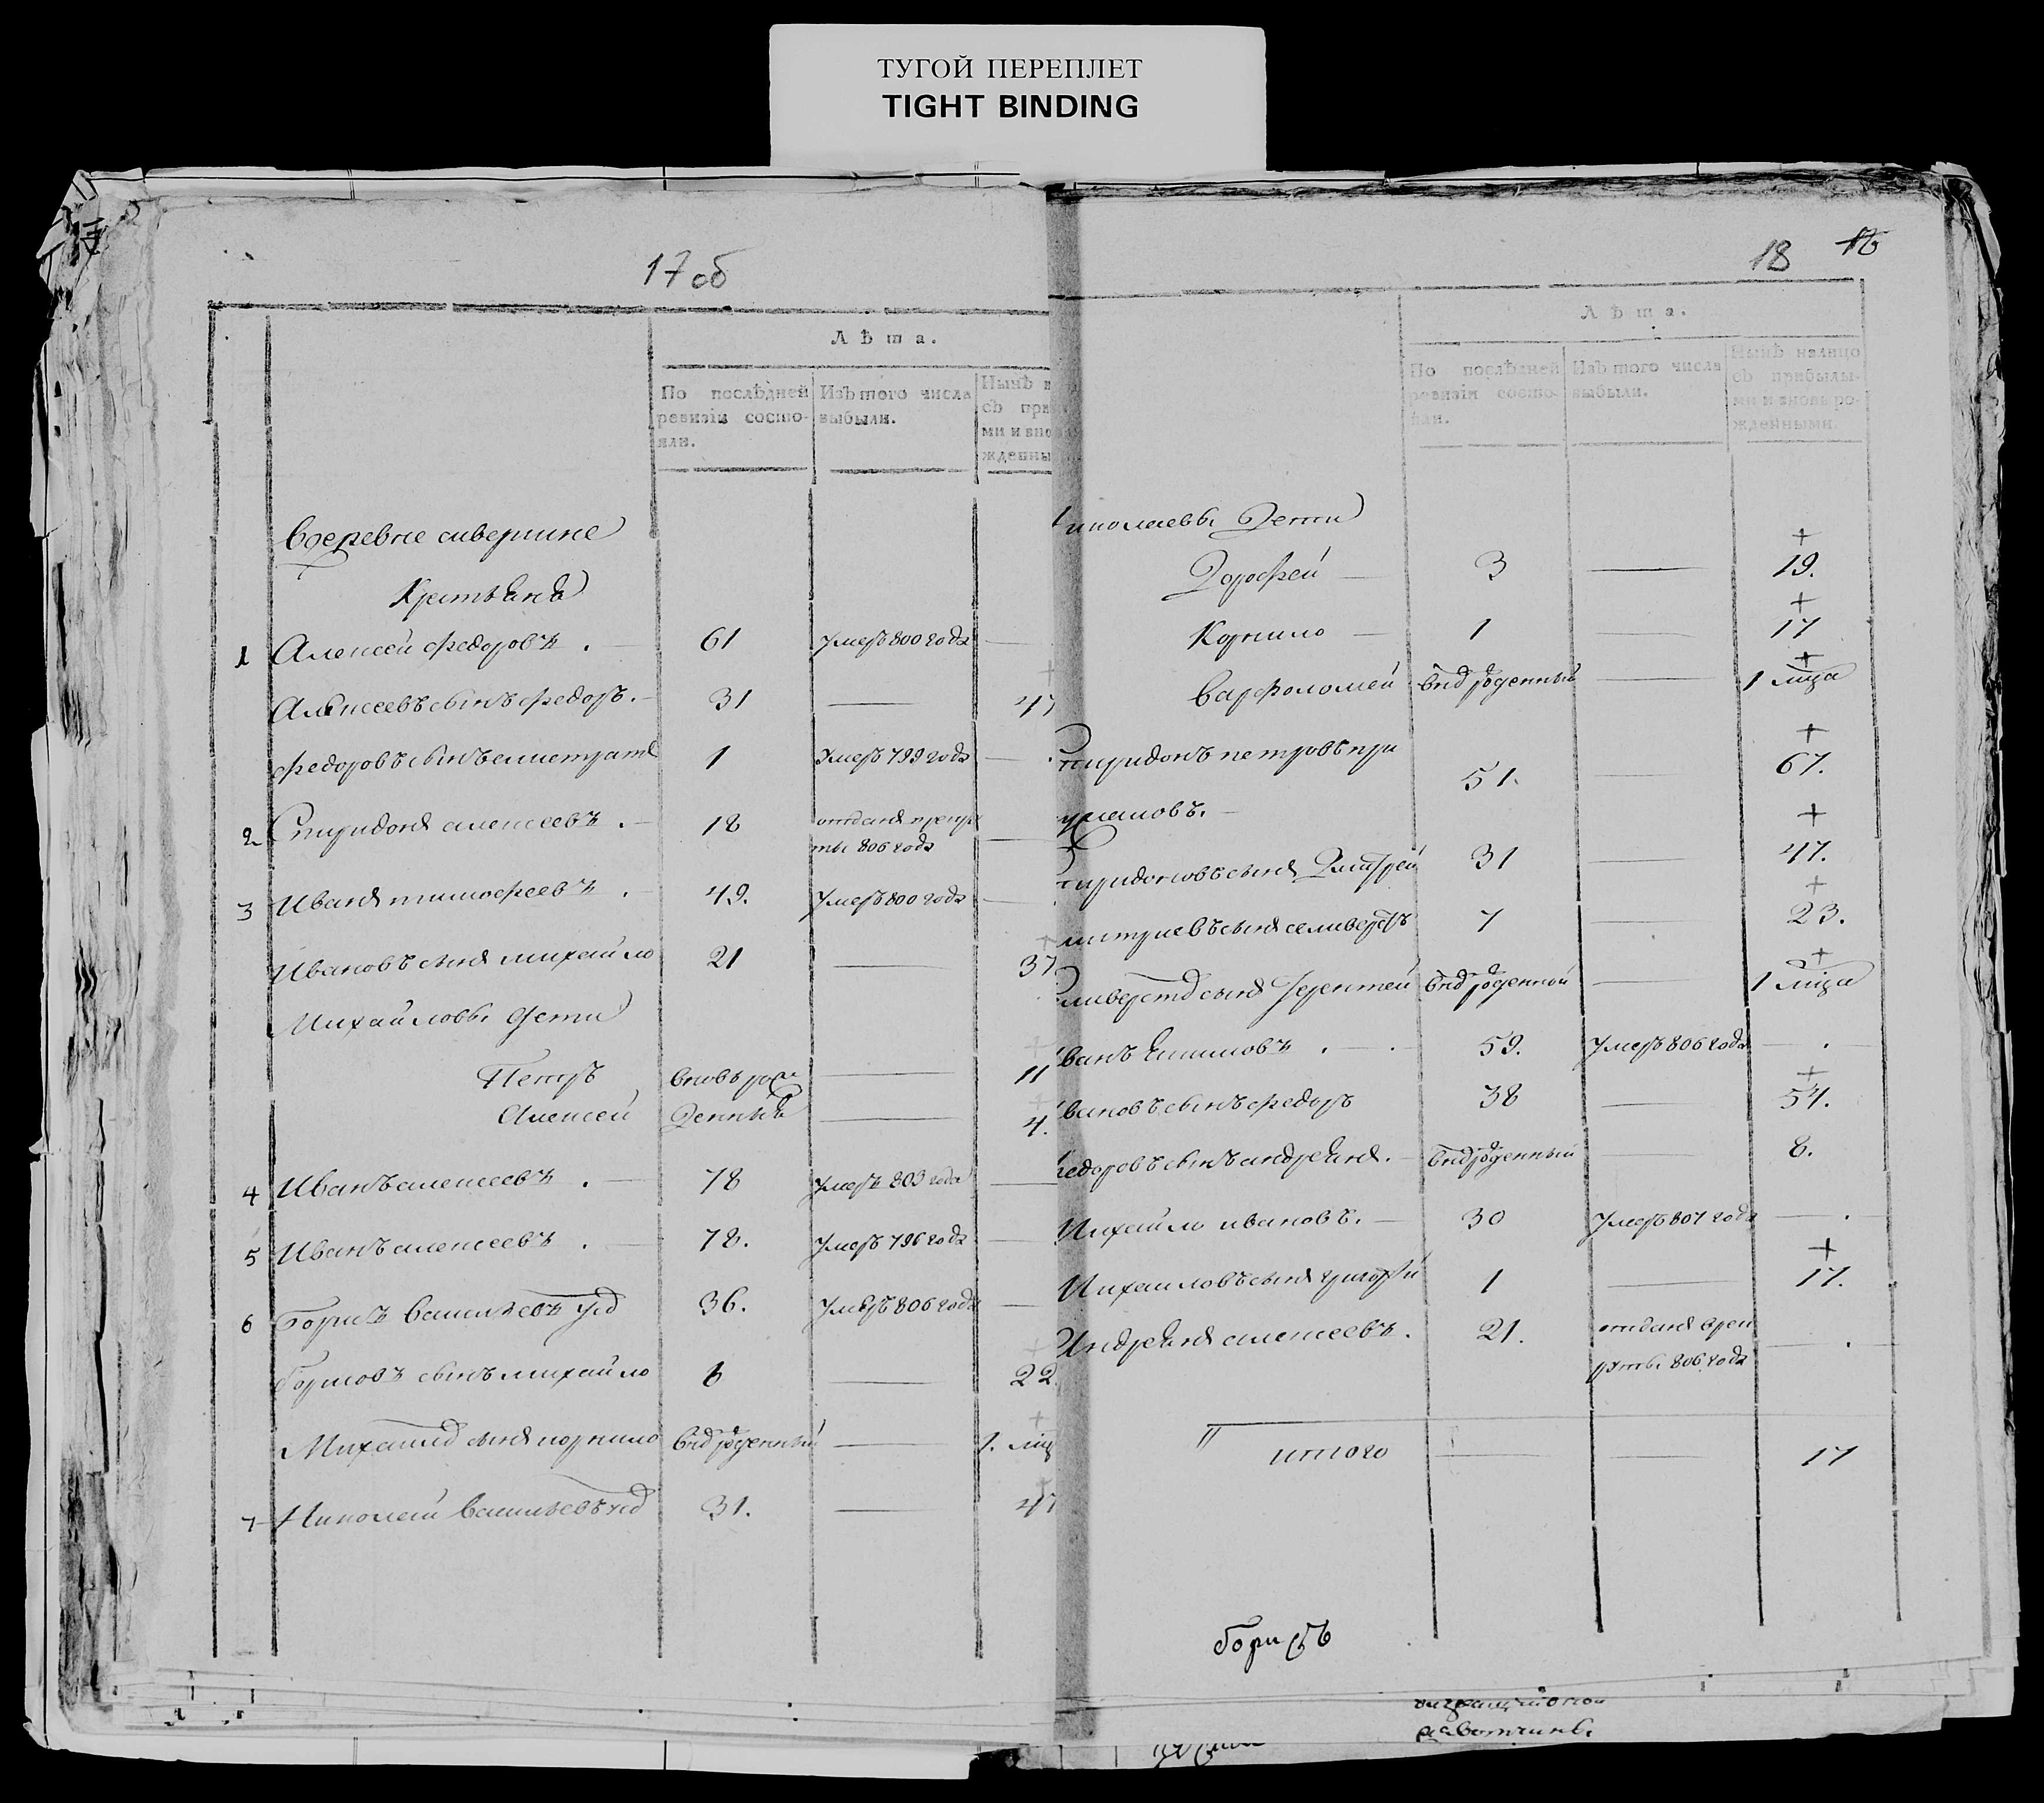 ТУГОЙ ПЕРЕПЛЕТ
TIGHT BINDING
17 об
Лѣта.
По послѣдней ревизіи состояли.
Изъ того числа выбыли.
Нынѣ
съ при
ми и вно
жденны
вдеревне
Крестьяне
1 Алексей федоровъ . 61 умеръ 800 года —
Алексеевъ сынъ федоръ. 31 — 47
федоровъ сынъ 1 умеръ 799 года —
2 Спиридонъ алексеевъ . 18 отданъ врекру
ты 806 года —
3 Иванъ тимофеевъ . 49. умеръ 800 года —
Ивановъ сынъ михайло 21 — 37
Михайловы дети
Петръ вновь рож — 11
Алексей денны — 4.
4 Иванъ алексеевъ . 78 умеръ 803 года —
5 Иванъ алексеевъ . 78. умеръ 796 года —
6 Борисъ васильевъ 36. умеръ 806 года —
борисовъ сынъ михайло 6 — 22.
Михайлъ сынъ корнило вно рожденный — 1. мц
7 Николай васильевъ 31. — 47
18 16
Лѣта.
По послѣдней ревизіи состояли.
Изъ того числа выбыли.
Нынѣ налицо съ прибылыми и вновь рожденными.
иколаевы Дети
Дорофей — 3 — 19.
Корнило — 1 — 17
варфоломей вно рожденный — 1 мца
пиридонъ петровъ при
51. — 67.
умановъ. —
пиридоновъ сынъ Дмитрей 31 — 47.
митриевъ сынъ селиверстъ 7 — 23.
ливерстъ сынъ терентей вно рожденной — 1 мца
ванъ . 59. умеръ 806 года — .
вановъ сынъ федоръ 38 — 54.
едоровъ сынъ андреянъ. — вно рожденный — 8.
Михайло ивановъ. — 30 умеръ 807 года — .
Михайловъ сынъ григорей 1 — 17.
Андреянъ алексеевъ. 21. отданъ врек
руты 806 года — .
итого — — 17
борисъ